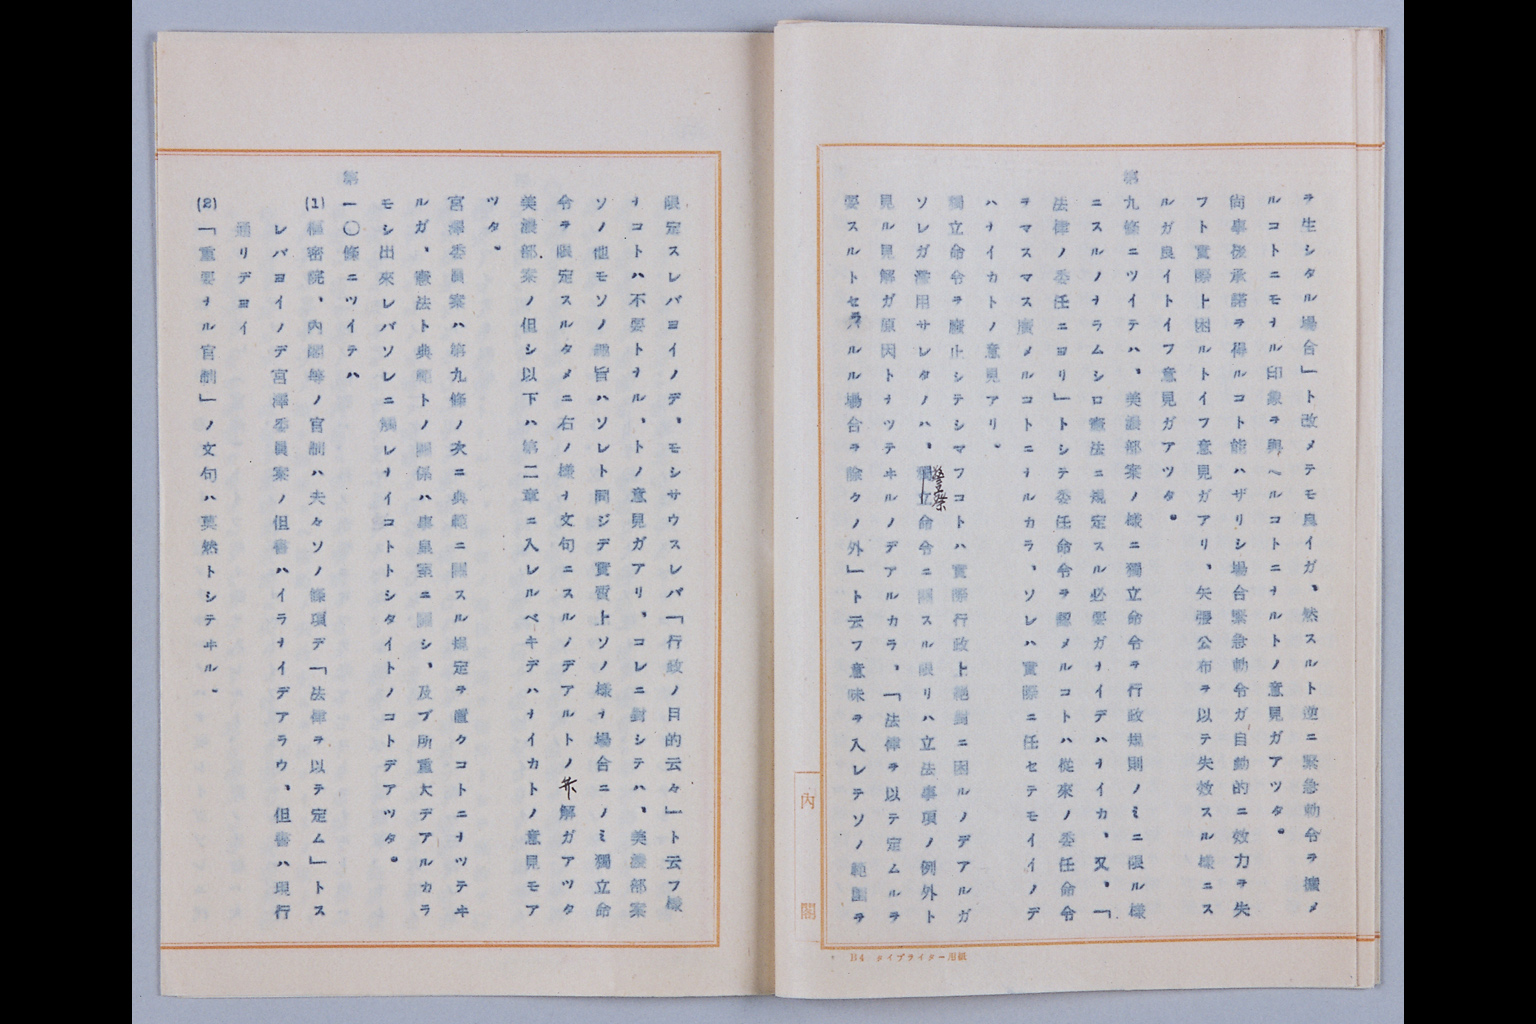 ヲ生シタル場合」ト改メテモ良イガ、然スルト逆ニ緊急勅令ヲ擴メ
ルコトニモナル印象ヲ與ヘルコトニナルトノ意見ガアツタ。
尚事後承諾ヲ得ルコト能ハザリシ場合緊急勅令ガ自動的ニ效力ヲ失
フト實際上困ルトイフ意見ガアリ、矢張公布ヲ以テ失效スル樣ニス
ルガ良イトイフ意見ガアツタ。
第九條ニツイテハ、美濃部案ノ樣ニ獨立命令ヲ行政規則ノミニ限ル樣
ニスルノナラムシロ憲法ニ規定スル必要ガナイデハナイカ、又、「
法律ノ委任ニヨリ」トシテ委任命令ヲ認メルコトハ從來ノ委任命令
ヲマスマス廣メルコトニナルカラ、ソレハ實際ニ任セテモイイノデ
ハナイカトノ意見アリ。
獨立命令ヲ廢止シテシマフコトハ實際行政上絕對ニ困ルノデアルガ
ソレガ濫用サレタノハ、警察命令ニ關スル限リハ立法事項ノ例外ト
見ル見解ガ原因トナツテヰルノデアルカラ、「法律ヲ以テ定ムルヲ
要スルトセラルル場合ヲ除クノ外」ト云フ意味ヲ入レテソノ範圍ヲ
內閣
B4 タイプライター用紙
限定スレバヨイノデ、モシサウスレバ「行政ノ目的云々」ト云フ樣
ナコトハ不要トナル、トノ意見ガアリ、コレニ對シテハ、美濃部案
ソノ他モソノ趣旨ハソレト同ジデ實質上ソノ樣ナ場合ニノミ獨立命
令ヲ限定スルタメニ右ノ樣ナ文句ニスルノデアルトノ弁解ガアツタ
美濃部案ノ但シ以下ハ第二章ニ入レルベキデハナイカトノ意見モア
ツタ。
宮澤委員案ハ第九條ノ次ニ典範ニ關スル規定ヲ置クコトニナツテヰ
ルガ、憲法ト典範トノ關係ハ事皇室ニ關シ、及ブ所重大デアルカラ
モシ出來レバソレニ觸レナイコトトシタイトノコトデアツタ。
第一〇條ニツイテハ
(1)樞密院、內閣等ノ官制ハ夫々ソノ條項デ「法律ヲ以テ定ム」トス
レバヨイノデ宮澤委員案ノ但書ハイラナイデアラウ、但書ハ現行
通リデヨイ
(2)「重要ナル官制」ノ文句ハ莫然トシテヰル。